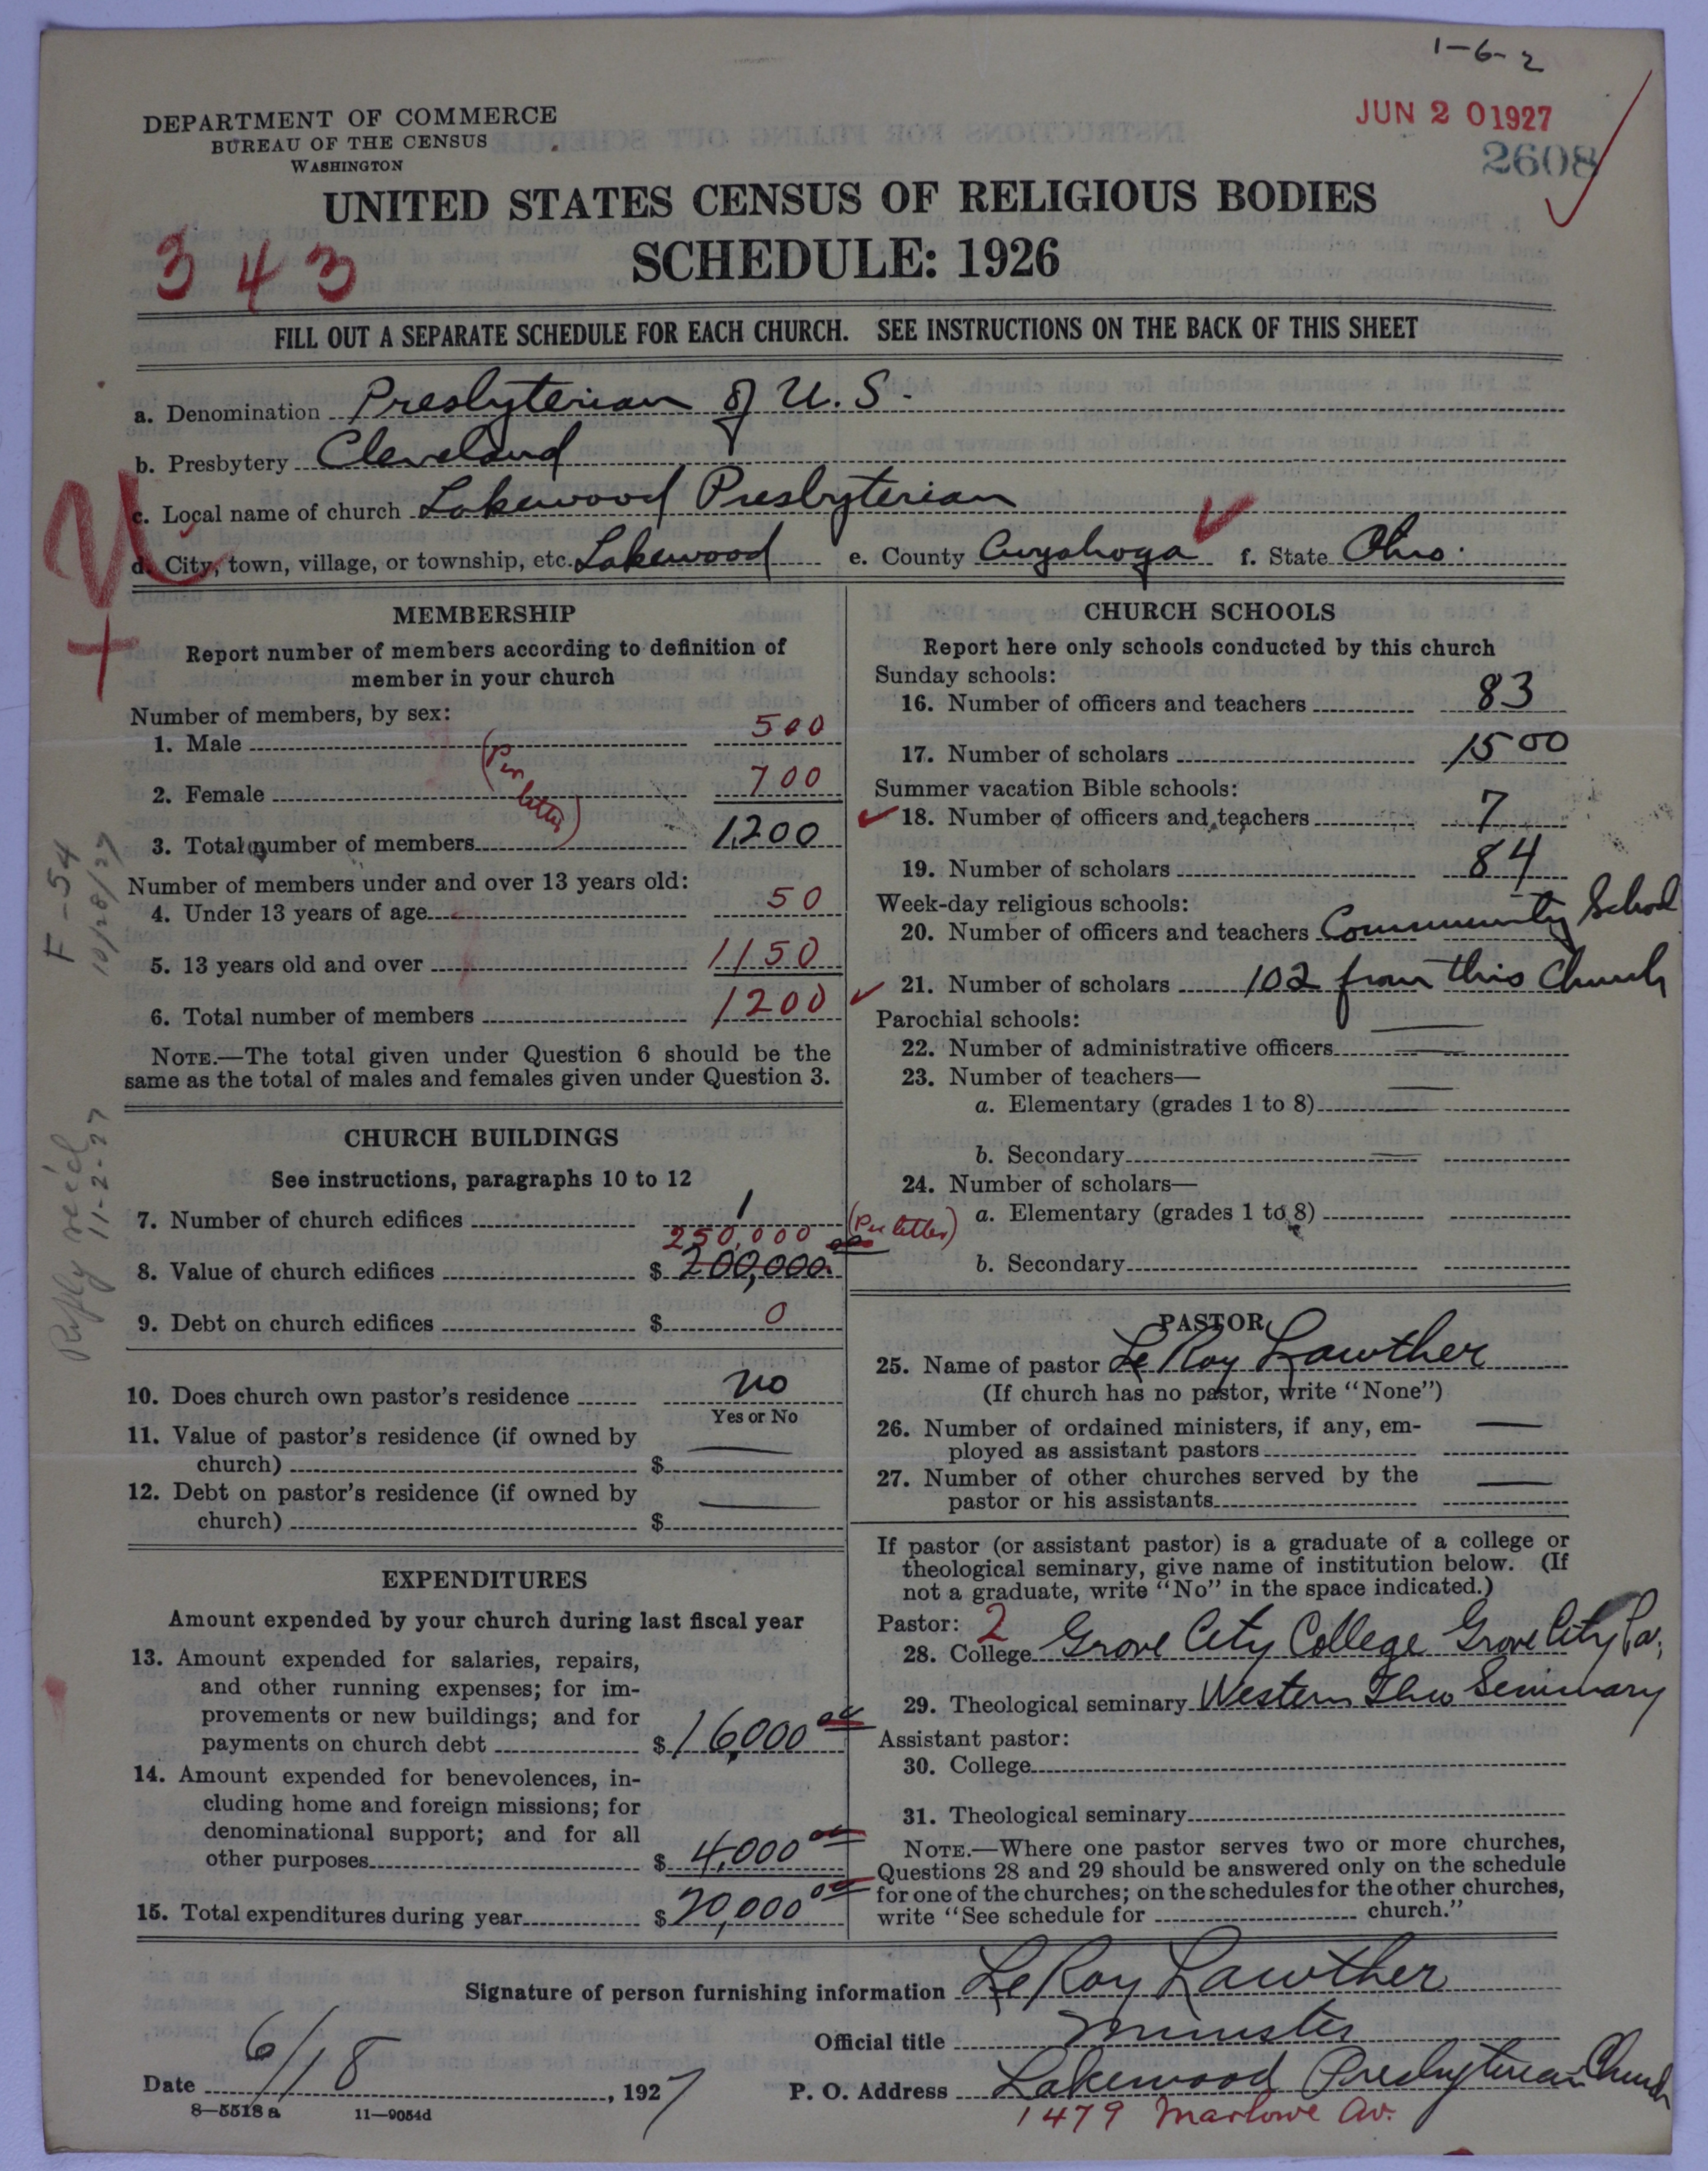 1-6-2
JUN 2 0 1927
2608
DEPARTMENT OF COMMERCE
BUREAU OF THE CENSUS
WASHINGTON
UNITED STATES CENSUS OF RELIGIOUS BODIES
SCHEDULE: 1926
343
FILL OUT A SEPARATE SCHEDULE FOR EACH CHURCH. SEE INSTRUCTIONS ON THE BACK OF THIS SHEET
a. Denomination Presbyterian of U. S.
b. Presbytery Cleveland
c. Local name of church Lakewood Presbyterian
d. City, town, village, or township, etc. Lakewood e. County Cuyahoga f. State Ohio.
MEMBERSHIP
Report number of members according to definition of
member in your church
Number of members, by sex:
1. Male 500
(Per letter)
2. Female 700
3. Total number of members 1,200
Number of members under and over 13 years old:
4. Under 13 years of age 50
5. 13 years old and over 1150
6. Total number of members 1200
NOTE.—The total given under Question 6 should be the
same as the total of males and females given under Question 3.
F-54
10/28/27
Reply rec'd
11-2-27
CHURCH BUILDINGS
See instructions, paragraphs 10 to 12
7. Number of church edifices 1
250,000 (Per letter)
8. Value of church edifices $ 200,000.00
9. Debt on church edifices $ 0
10. Does church own pastor's residence no
Yes or No
11. Value of pastor's residence (if owned by
church) $ —
12. Debt on pastor's residence (if owned by
church) $ —
EXPENDITURES
Amount expended by your church during last fiscal year
13. Amount expended for salaries, repairs,
and other running expenses; for im-
provements or new buildings; and for
payments on church debt $ 16,000 00
14. Amount expended for benevolences, in-
cluding home and foreign missions; for
denominational support; and for all
other purposes $ 4,000 00
15. Total expenditures during year $ 20,000 00
CHURCH SCHOOLS
Report here only schools conducted by this church
Sunday schools:
16. Number of officers and teachers 83
17. Number of scholars 1500
Summer vacation Bible schools:
18. Number of officers and teachers 7
19. Number of scholars 84
Week-day religious schools:
20. Number of officers and teachers Community School
21. Number of scholars 102 from this Church
Parochial schools:
22. Number of administrative officers —
23. Number of teachers—
a. Elementary (grades 1 to 8) —
b. Secondary —
24. Number of scholars—
a. Elementary (grades 1 to 8)
b. Secondary
PASTOR
25. Name of pastor Le Roy Lawther
(If church has no pastor, write "None")
26. Number of ordained ministers, if any, em-
ployed as assistant pastors —
27. Number of other churches served by the
pastor or his assistants —
If pastor (or assistant pastor) is a graduate of a college or
theological seminary, give name of institution below. (If
not a graduate, write "No" in the space indicated.)
Pastor: 2
28. College Grove City College Grove City Pa.
29. Theological seminary Western Theo Seminary
Assistant pastor:
30. College
31. Theological seminary
NOTE.—Where one pastor serves two or more churches,
Questions 28 and 29 should be answered only on the schedule
for one of the churches; on the schedules for the other churches,
write "See schedule for church."
Signature of person furnishing information Le Roy Lawther
Official title Minister
Date 6/18, 1927
P. O. Address Lakewood Presbyterian Church
1479 Marlowe Av.
8—5518 a 11—9054d